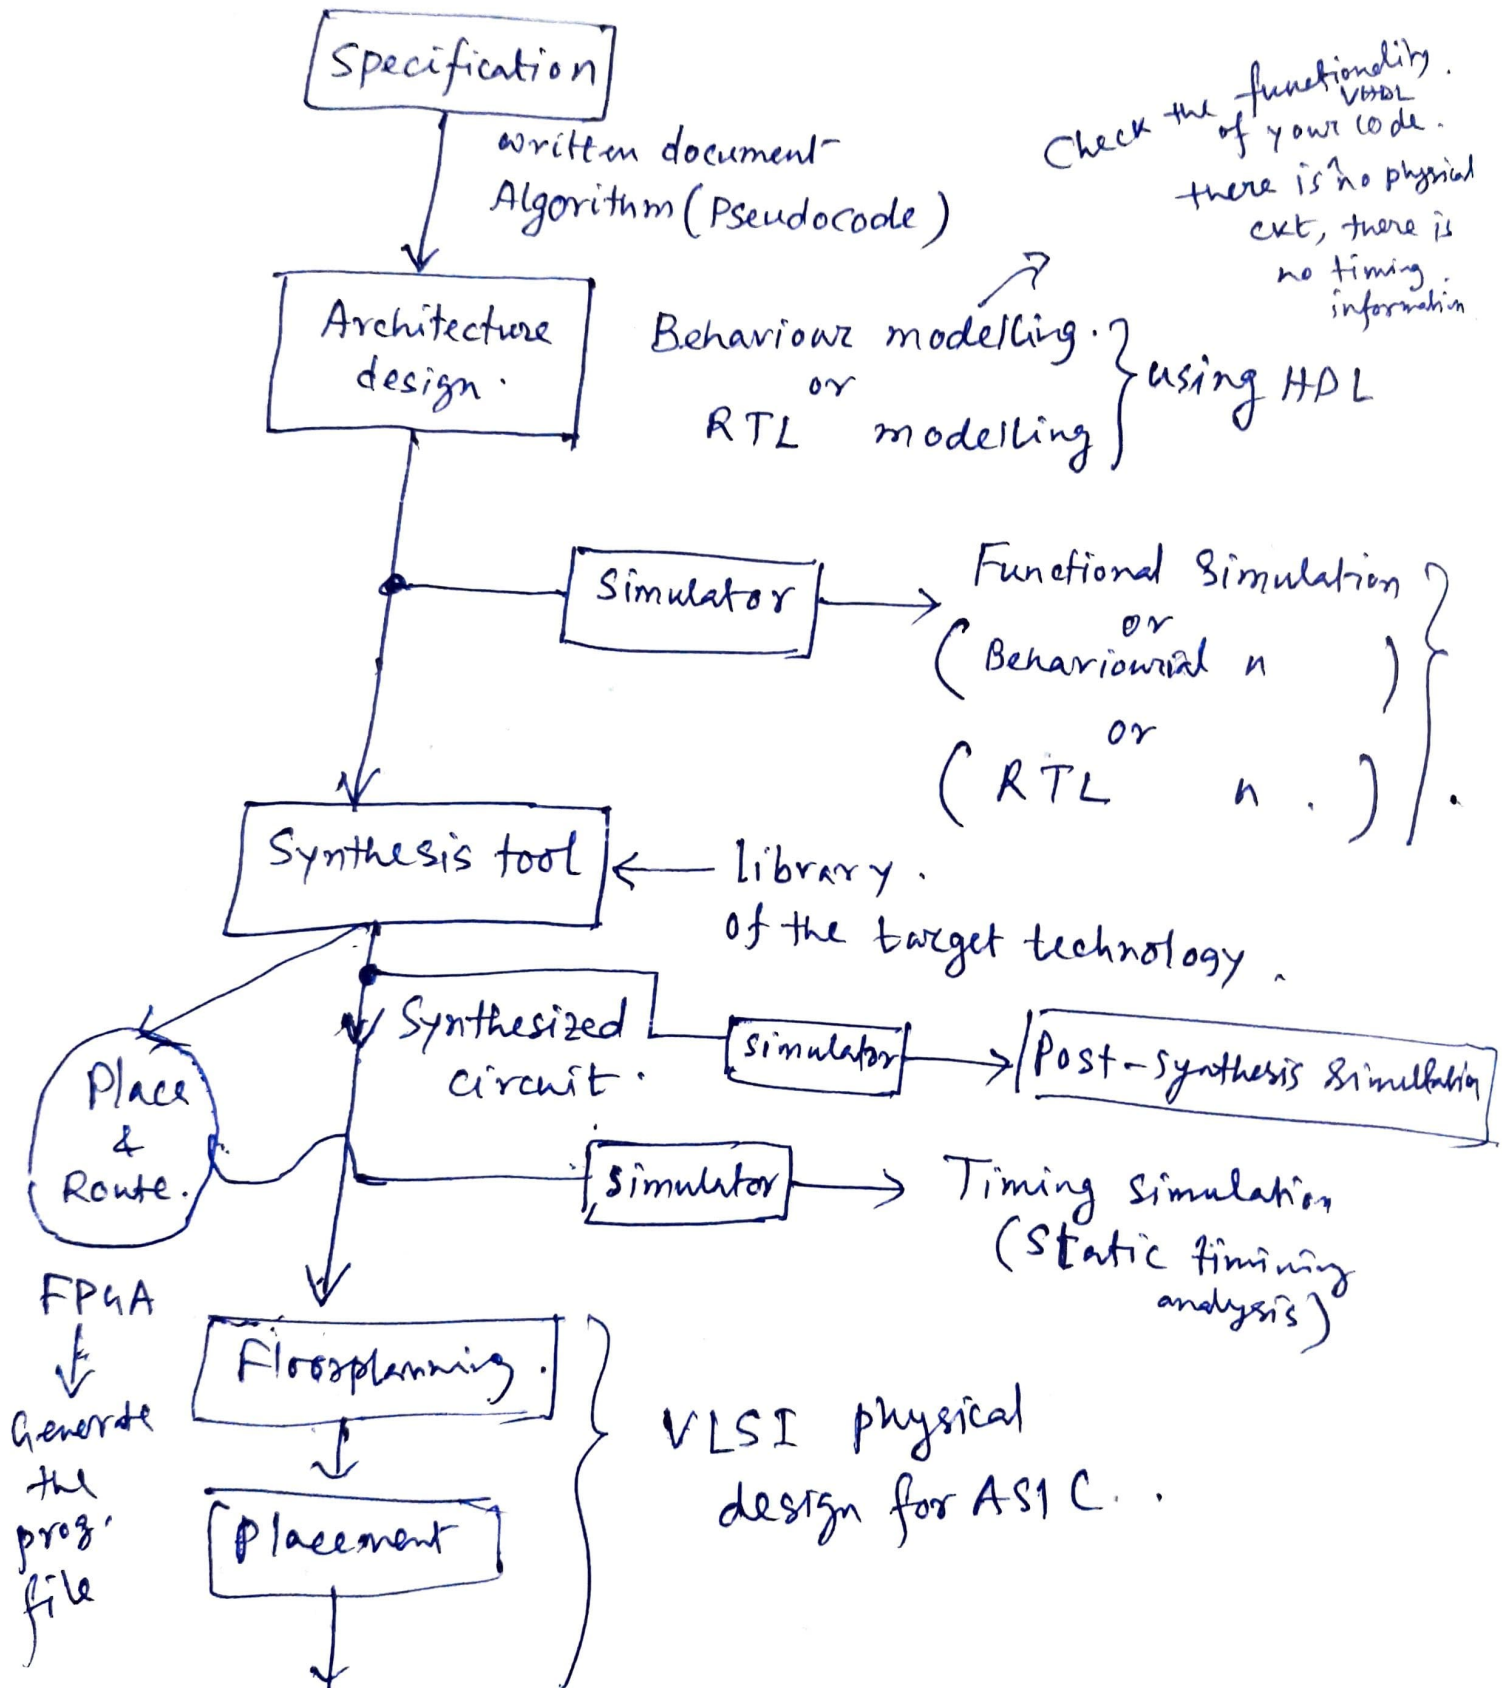 Specification
written document
Algorithm (Pseudocode)
Check the functionality.
VHDL
of your ^ code.
there is no physical
ckt, there is
no timing.
information
Architecture
design.
Behaviour modelling.
or
RTL modelling
using HDL
Simulator
Functional Simulation
or
(Behaviourial " )
or
(RTL " . )
.
Synthesis tool
library.
of the target technology.
Synthesized
circuit.
simulator
Post-synthesis simulation
Place
&
Route.
simulator
Timing simulation
(Static timining
analysis)
FPGA
Generate
the
prog.
file
Floorplanning.
Placement
VLSI physical
design for ASIC..